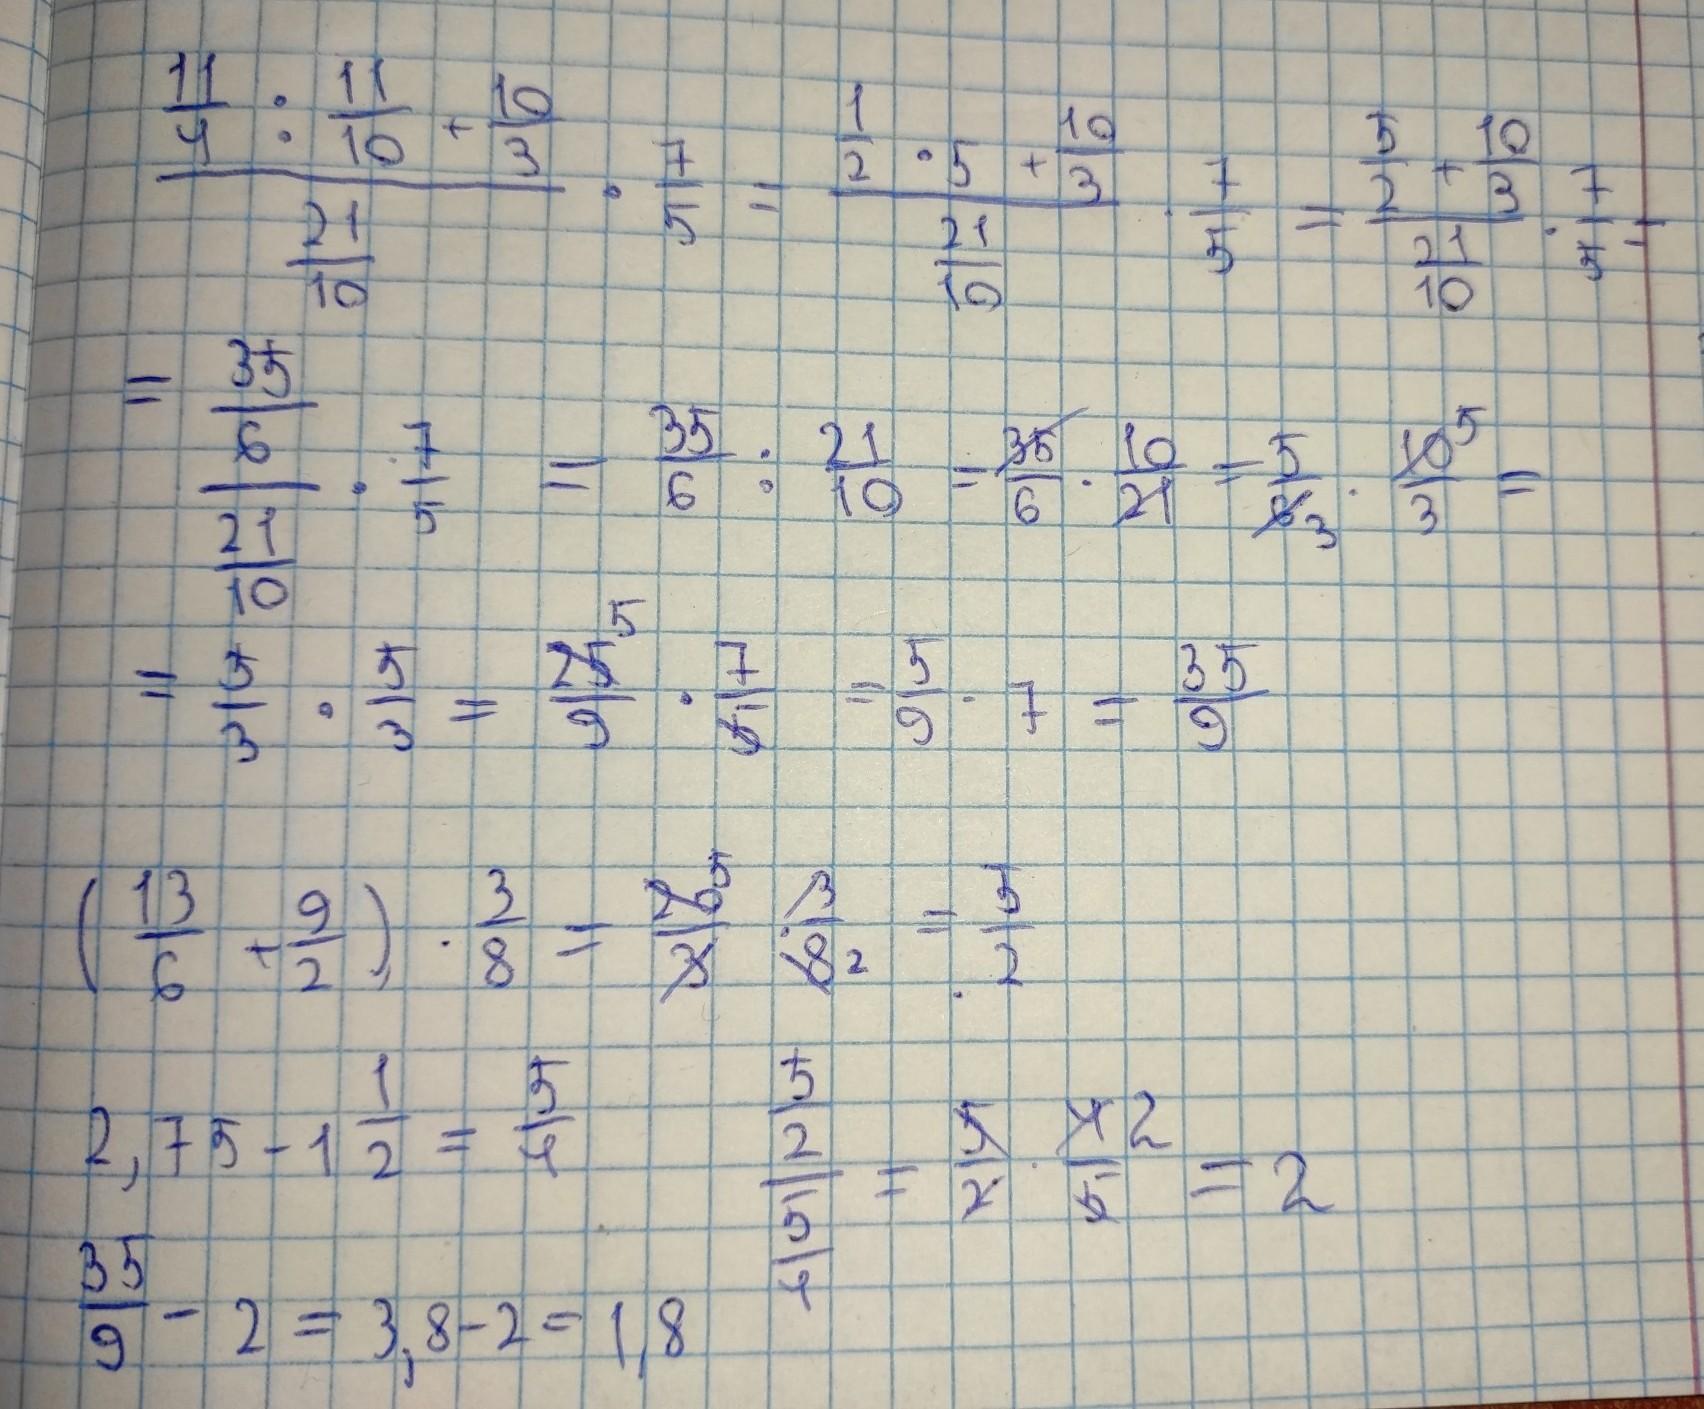 (11/4 : 11/10 + 10/3) / (21/10) · 7/5 = (1/2 · 5 + 10/3) / (21/10) · 7/5 = (5/2 + 10/3) / (21/10) · 7/5 =
= (35/6) / (21/10) · 7/5 = 35/6 : 21/10 = 35/6 · 10/21 = 5/6 3 · 10 5/3 =
= 5/3 · 5/3 = 25 5/9 · 7/5 = 5/9 · 7 = 35/9
(13/6 + 9/2) · 3/8 = 20 5/3 · 3/8 2 = 5/2
2,75 - 1 1/2 = 5/4 (5/2) / (5/4) = 5/2 · 4 2/5 = 2
35/9 - 2 = 3,8 - 2 = 1,8